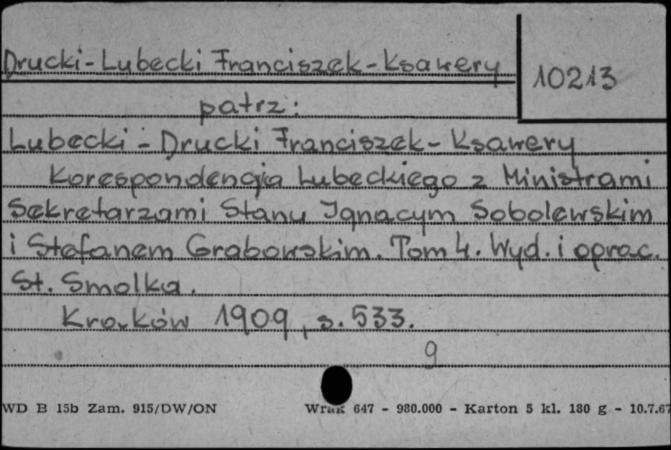 Drucki-Lubecki Franciszek-Ksawery
10213
patrz:
Lubecki-Drucki Franciszek-Ksawery
Korespondencja Lubeckiego z Ministrami
Sekretarzami Stanu Ignacym Sobolewskim
i Stefanem Grabowskim. Tom 4. Wyd. i oprac.
St. Smolka.
Kraków 1909, s. 533.
9
WD B 15b Zam. 915/DW/ON Wrak 647 - 980.000 - Karton 5 kl. 180 g - 10.7.67